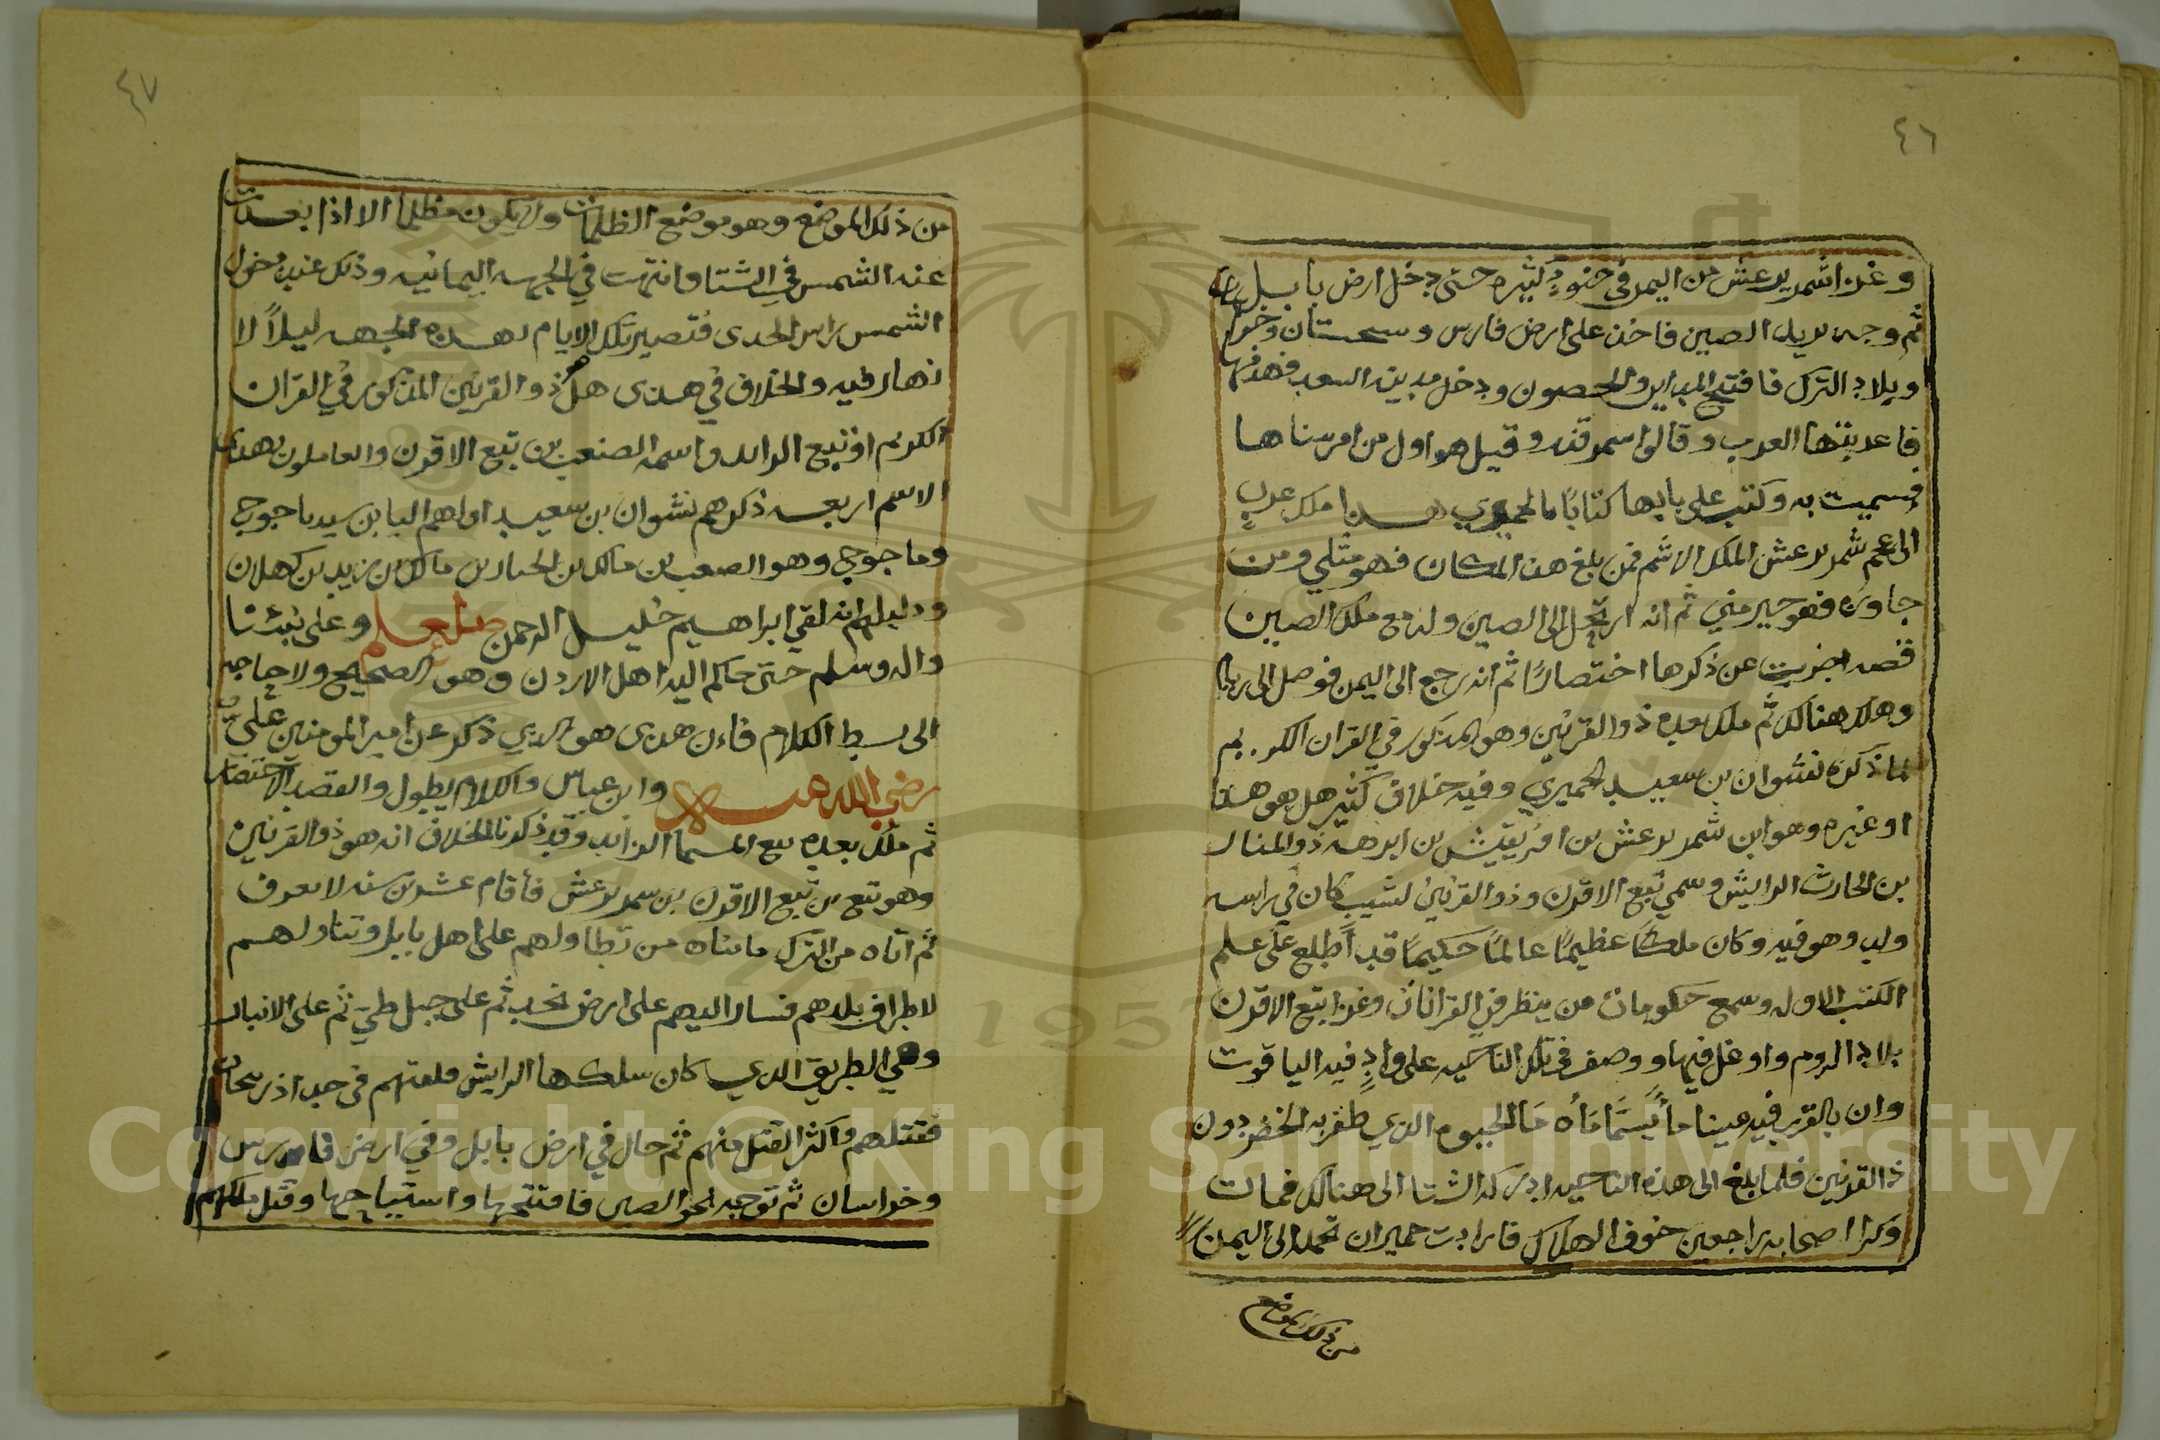 ٤٦
وغزا شمر يرعش من اليمن في جنودٍ كثيره حتى دخل ارض بابل
ثم وجه يريد الصين فاخذ على ارض فارس وسجستان وخراسان
وبلاد الترك فافتتح المداين والحصون ودخل مدينة السعد فهدمها
فاعربتها العرب وقالوا سمرقند وقيل هو اول من امر بناها
فسميت به وكتب على بابها كتابًا بالحميري هذا ملك عرب
الى عجم شمر يرعش الملك الاشم فمن بلغ هذا المكان فهو مثلي ومن
جاوزه فهو خير مني ثم انه ارتحل الى الصين وله مع ملك الصين
قصه اضربت عن ذكرها اختصارًا ثم انه رجع الى اليمن فوصل الى
وهلك هنالك ثم ملك بعده ذوالقرنين وهو المذكور في القران الكريم
لما ذكره نشوان بن سعيد الحميري وفيه خلاف كثير هل هو هذا
او غيره وهو ابن شمر يرعش بن افريقيش بن ابرهة ذوالمنار
بن الحارث الرايش وسمي تبع الاقرن وذوالقرنين لشيب كان في راسه
ولد وهو فيه وكان ملكًا عظيمًا عالمًا حكيمًا قد اطلع على علم
الكتب الاوله وسمع حكومات من ينظر في القرانات وغزا تبع الاقرن
بلاد الروم واوغل فيها ووصف في تلك الناحيه على وادٍ فيه الياقوت
وان بالقرب فيه عينا ماءً يسمَّا مَاه مَا الحيوه الذي ظفر به الخضر دون
ذالقرنين فلما بلغ الى هذه الناحيه ادركه الشتا الى هنالك فمات
وكرا اصحابه راجعين خوف الهلاك فارادت حمير ان تحمله الى اليمن
من ذلك الموضع
٤٧
من ذلك الموضع وهو موضع الظلمات ولا يكون مظلما الا اذا بعدت
عنه الشمس في الشتا وانتهت في الجهه اليمانيه وذلك عند دخول
الشمس راس الجدى فتصير تلك الايام لهذه الجهه ليلاً لا
نهار فيه والخلاف في هذى هل ذوالقرنين المذكور في القران
الكريم او تبع الرايد واسمه الصعب بن تبع الاقرن والعاملون بهذا
الاسم اربعه ذكرهم نشوان بن سعيد اولهم الباني سد ياجوج
وماجوج وهو الصعب بن مالك بن الحارث مالك بن زيد بن كهلان
ودليلهم انه لقي ابراهيم خليل الرحمن صلعلم وعلى نبينا
واله وسلم حتى حاكم اليه اهل الاردن وهو الصحيح ولا حاجه
الى بسط الكلام فان هذى هو الذي ذكر عن امير المومنين علي
رضي الله عنه وابن عباس والكلام يطول والقصد الاختصار
ثم ملك بعده تبع المسما الرائد وقد ذكرنا الخلاف انه هو ذوالقرنين
وهو تبع بن تبع الاقرن بن شمر يرعش فأقام عشرين سنه لا يعرف
ثم اتاه من الترك ما سَاه من تطاولهم على اهل بابل وتناولهم
لاطراف بلدهم فسار اليهم على ارض نجد ثم على جبل طيّ ثم على الانبار
وهي الطريق الذي كان سلكها الرايش فلقيهم في حد اذربيجان
فقتلهم واكثر القتل منهم ثم حال في ارض بابل وفي ارض فارس
وخراسان ثم توجه نحو الصين فافتتحها واستباحها وقتل ملكهم